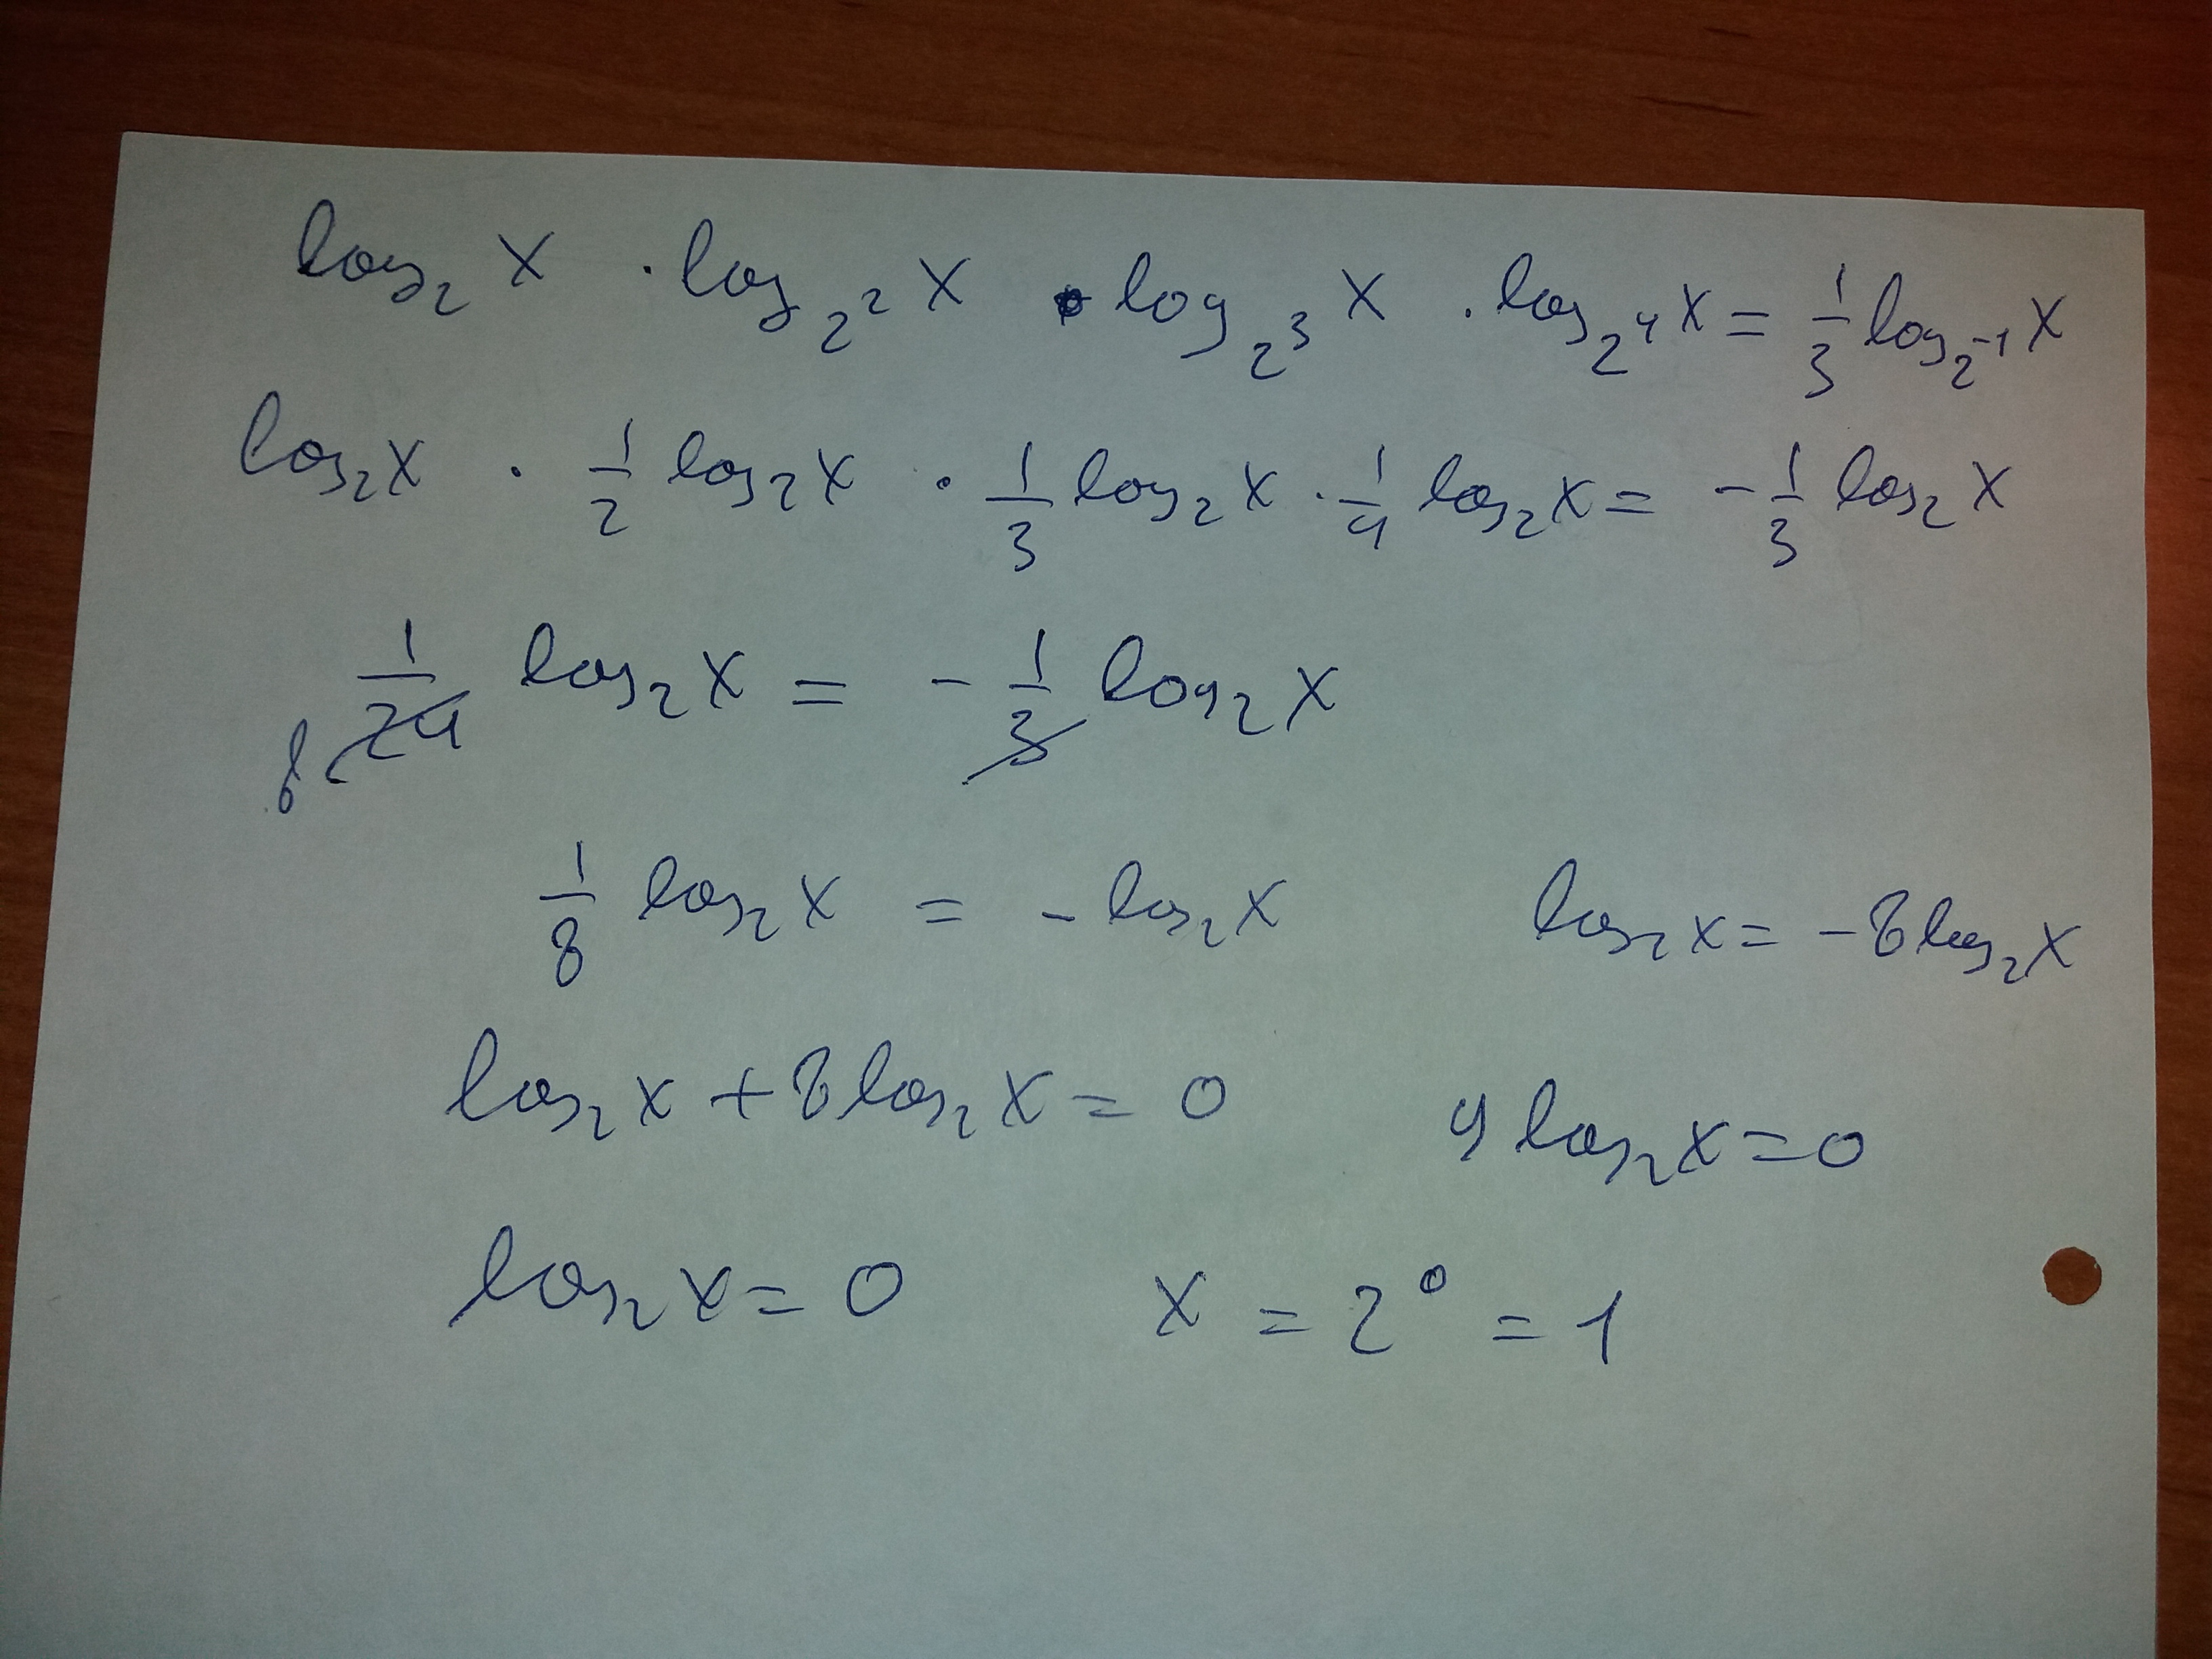 log₂ x · log₂² x · log₂³ x · log₂⁴ x = 1/3 log₂⁻¹ x
log₂ x · 1/2 log₂ x · 1/3 log₂ x · 1/4 log₂ x = - 1/3 log₂ x
1/24 log₂ x = - 1/3 log₂ x
8
1/8 log₂ x = - log₂ x log₂ x = - 8 log₂ x
log₂ x + 8 log₂ x = 0 9 log₂ x = 0
log₂ x = 0 x = 2⁰ = 1